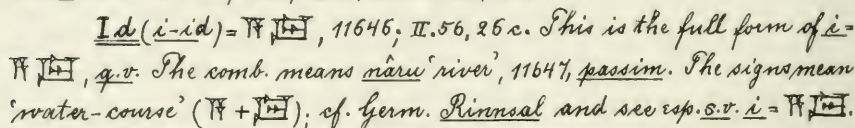 Id (i-id) = 𒀀𒇉, 11646; II. 56, 26 c. This is the full form of i =
𒀀𒇉, q.v. The comb. means nâru 'river', 11647, passim. The signs mean
'water-course' (𒀀 + 𒇉); cf. Germ. Rinnsal and see esp. s.v. i = 𒀀𒇉.